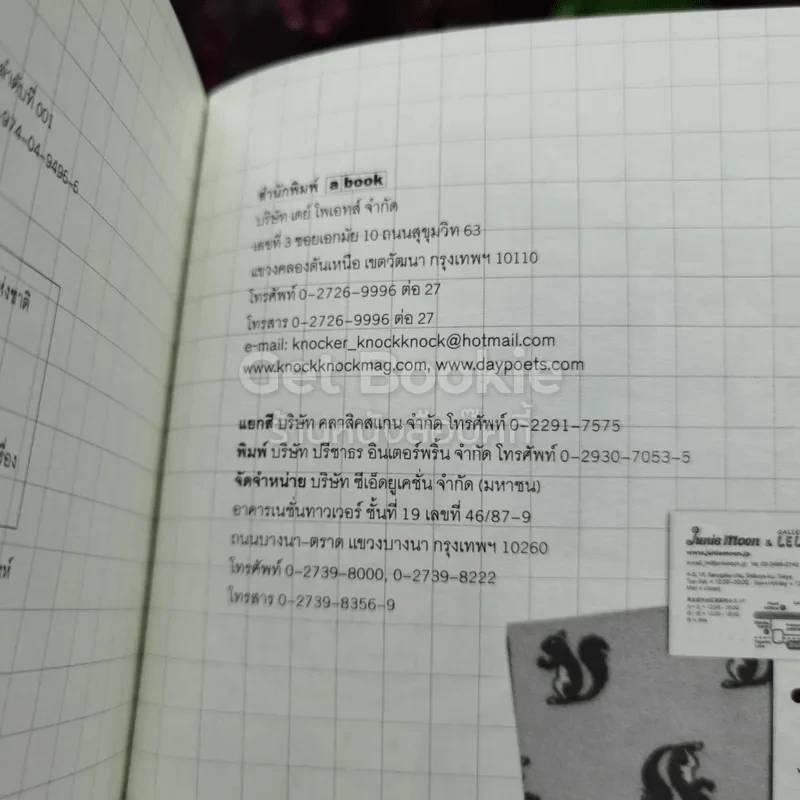 ลำดับที่ 001
974-04-9496-6
แห่งชาติ
สำนักพิมพ์ a book
บริษัท เดย์ โพเอทส์ จำกัด
เลขที่ 3 ซอยเอกมัย 10 ถนนสุขุมวิท 63
แขวงคลองตันเหนือ เขตวัฒนา กรุงเทพฯ 10110
โทรศัพท์ 0-2726-9996 ต่อ 27
โทรสาร 0-2726-9996 ต่อ 27
e-mail: knocker_knockknock@hotmail.com
www.knockknockmag.com, www.daypoets.com
Get Bookie
ร้านหนังสือบุ๊คกี้
แยกสี บริษัท คลาสิคสแกน จำกัด โทรศัพท์ 0-2291-7575
พิมพ์ บริษัท ปรีชาธร อินเตอร์พริ้น จำกัด โทรศัพท์ 0-2930-7053-5
จัดจำหน่าย บริษัท ซีเอ็ดยูเคชั่น จำกัด (มหาชน)
อาคารเนชั่นทาวเวอร์ ชั้นที่ 19 เลขที่ 46/87-9
ถนนบางนา-ตราด แขวงบางนา กรุงเทพฯ 10260
โทรศัพท์ 0-2739-8000, 0-2739-8222
โทรสาร 0-2739-8356-9
Junie Moon &
www.juniemoon.jp